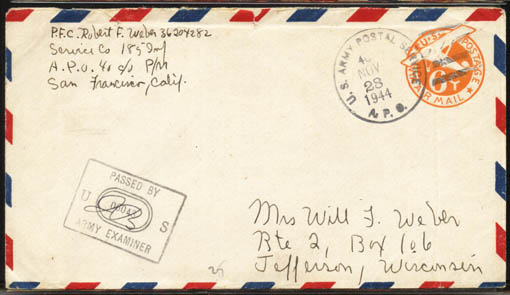 P.F.C. Robert F. Weber 36204282
Service Co 185 Inf
A.P.O. 40 c/o P/M
San Francisco, Calif.
U.S. ARMY POSTAL SERVICE
NOV
28
1944
A.P.O.
U.S. POSTAGE
6¢
AIR MAIL
PASSED BY
U S
ARMY EXAMINER
Mrs Will F. Weber
Rte 2, Box 106
Jefferson, Wisconsin